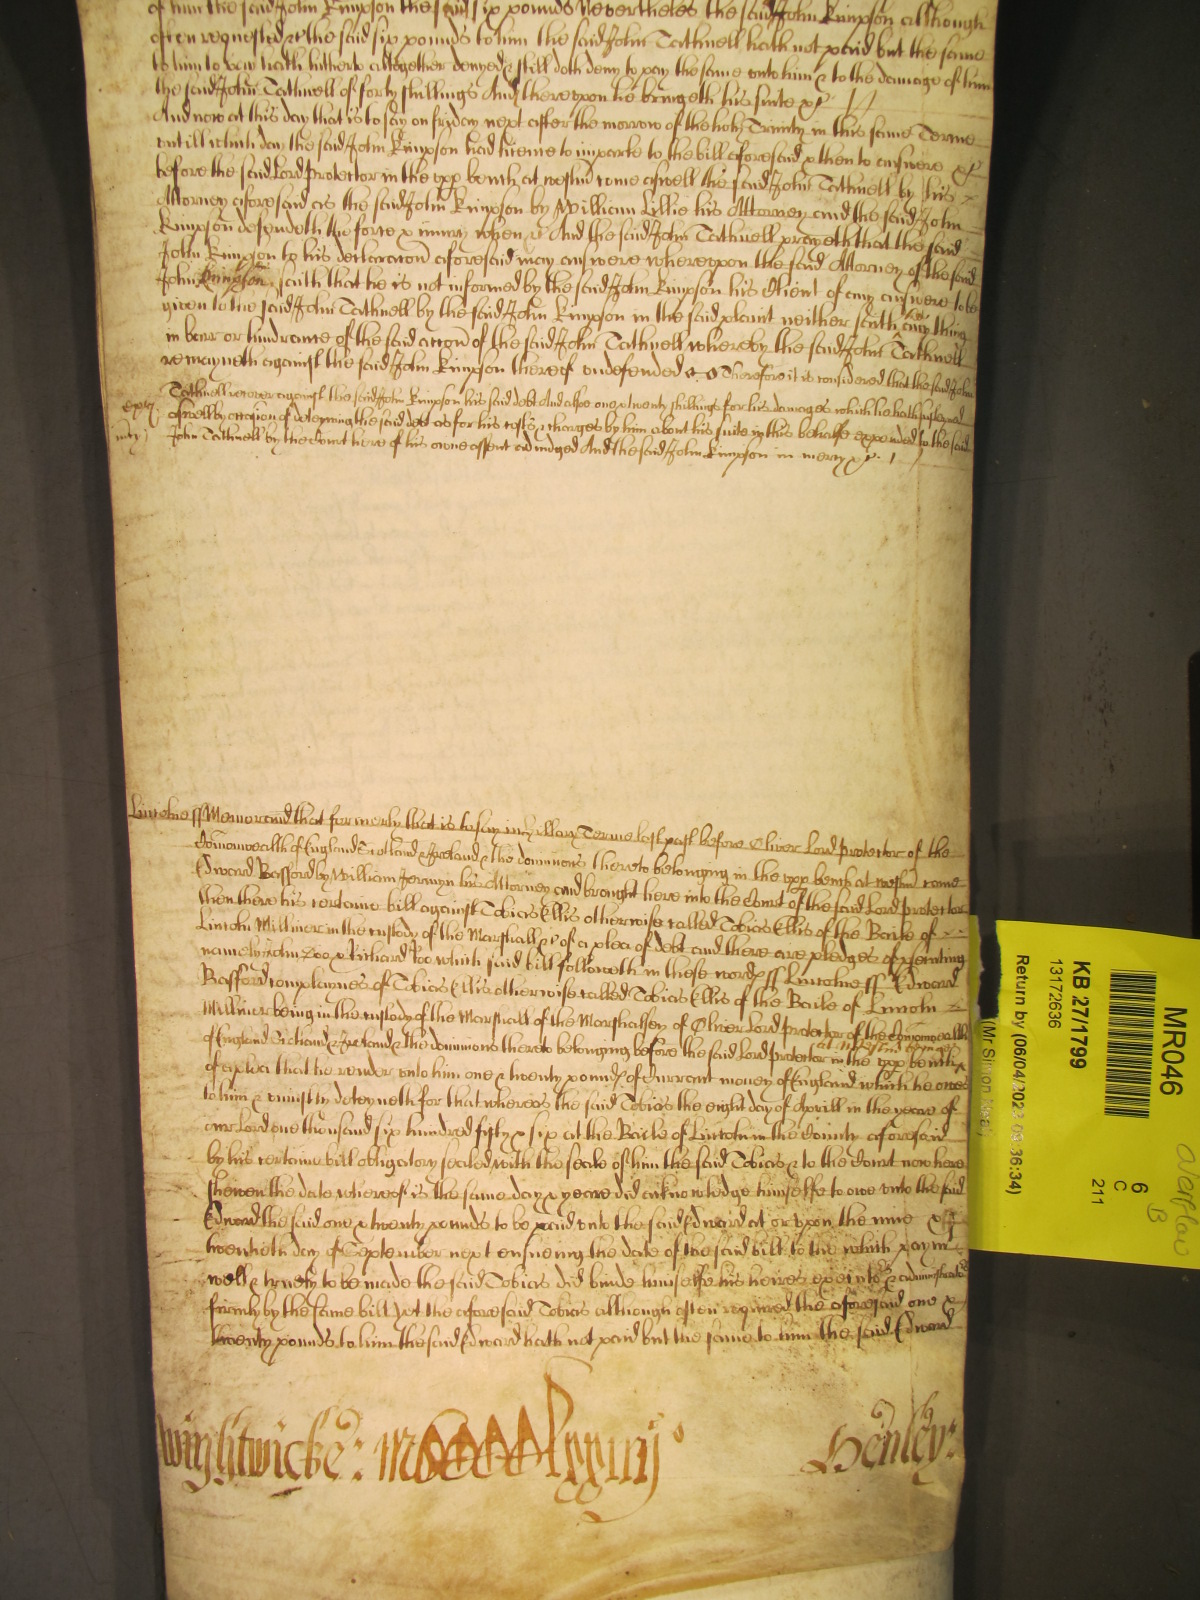 of him the said John Kimpson the said six pounds Nevertheles the said John Kimpson although
often requested the said six pounds to him the said John Tathnell hath not paid but the same
to him to pay hath hitherto altogether denyed & still doth deny to pay the same unto him & to the damage of him
the said John Tathnell of forty shillings And thereupon he bringeth his suite &c
And now at this day that is to say on fryday next after the morrow of the holy Trinity in this same Terme
untill which day the said John Kimpson had licence to imparle to the bill aforesaid & then to answere &c
before the said Lord Protector in the upp bench at westm come aswell the said John Tathnell by his
Attorney aforesaid as the said John Kimpson by William Lillie his Attorney and the said John
Kimpson defendeth the force & iniury when &c And the said John Tathnell prayeth that the said
John Kimpson to his declaracon aforesaid may answere whereupon the said Attorney of the said
John Kimpson saith that he is not informed by the said John Kimpson his Client of any answere to be
given to the said John Tathnell by the said John Kimpson in the said plaint neither saith any thing
in barr or hindrance of the said accon of the said John Tathnell whereby the said John Tathnell
remayneth against the said John Kimpson thereof undefended &c Therefore it is considered that the said John
Tathnell recover against the said John Kimpson his said debt And alsoe one & twenty shillings for his damages which he hath susteyned
aswell by occasion of deteyning the said debt as for his costs & charges by him about his suite in this behalfe expended to the said
John Tathnell by the Court here of his owne assent adiudged And the said John Kimpson in mercy &c
Lincolne ss Memorand that formerly that is to say in Hillary Terme last past before Oliver Lord Protector of the
Comonwealth of England Scotland & Ireland & the dominions thereto belonging in the upp bench at westm came
Edward Bassord by William Jermyn his Attorney and brought here into the Court of the said Lord Protector
then there his certaine bill against Tobias Ellis otherwise called Tobias Ellis of the Baile of
Lincoln Milliner in the custody of the Marshall &c of a plea of debt and there are pledges of prosecuting
namely John Doo & Richard Roo which said bill followeth in these words ss Lincolne ss Edward
Bassord complaynes of Tobias Ellis otherwise called Tobias Ellis of the Baile of Lincoln
Milliner being in the custody of the Marshall of the Marshalsey of Oliver Lord Protector of the Comonwealth
of England Scotland & Ireland & the dominions thereto belonging before the said Lord Protector in the upp bench
of a plea that he render unto him one & twenty pounds of Currant money of England which he owes
to him & uniustly deteyneth for that whereas the said Tobias the eight day of Aprill in the yeare of
our Lord one thousand six hundred fifty & six at the Baile of Lincoln in the County aforesaid
by his certaine bill obligatory sealed with the seale of him the said Tobias & to the Court now here
shewen the date whereof is the same day & yeare did acknowledge himselfe to owe unto the said
Edward the said one & twenty pounds to be paid unto the said Edward at or upon the nine &
twentieth day of September next ensueing the date of the said bill to the which paym
well & truely to be made the said Tobias did binde himselfe his heires executo & administrato
firmly by the same bill yet the aforesaid Tobias although often required the aforesaid one &
twenty pounds to him the said Edward hath not paid but the same to him the said Edward
Wightwicke:
Henley:
MR046
6
C
211
KB 27/1799
13172636
Return by (06/04/2023 09:36:34)
overflow
B